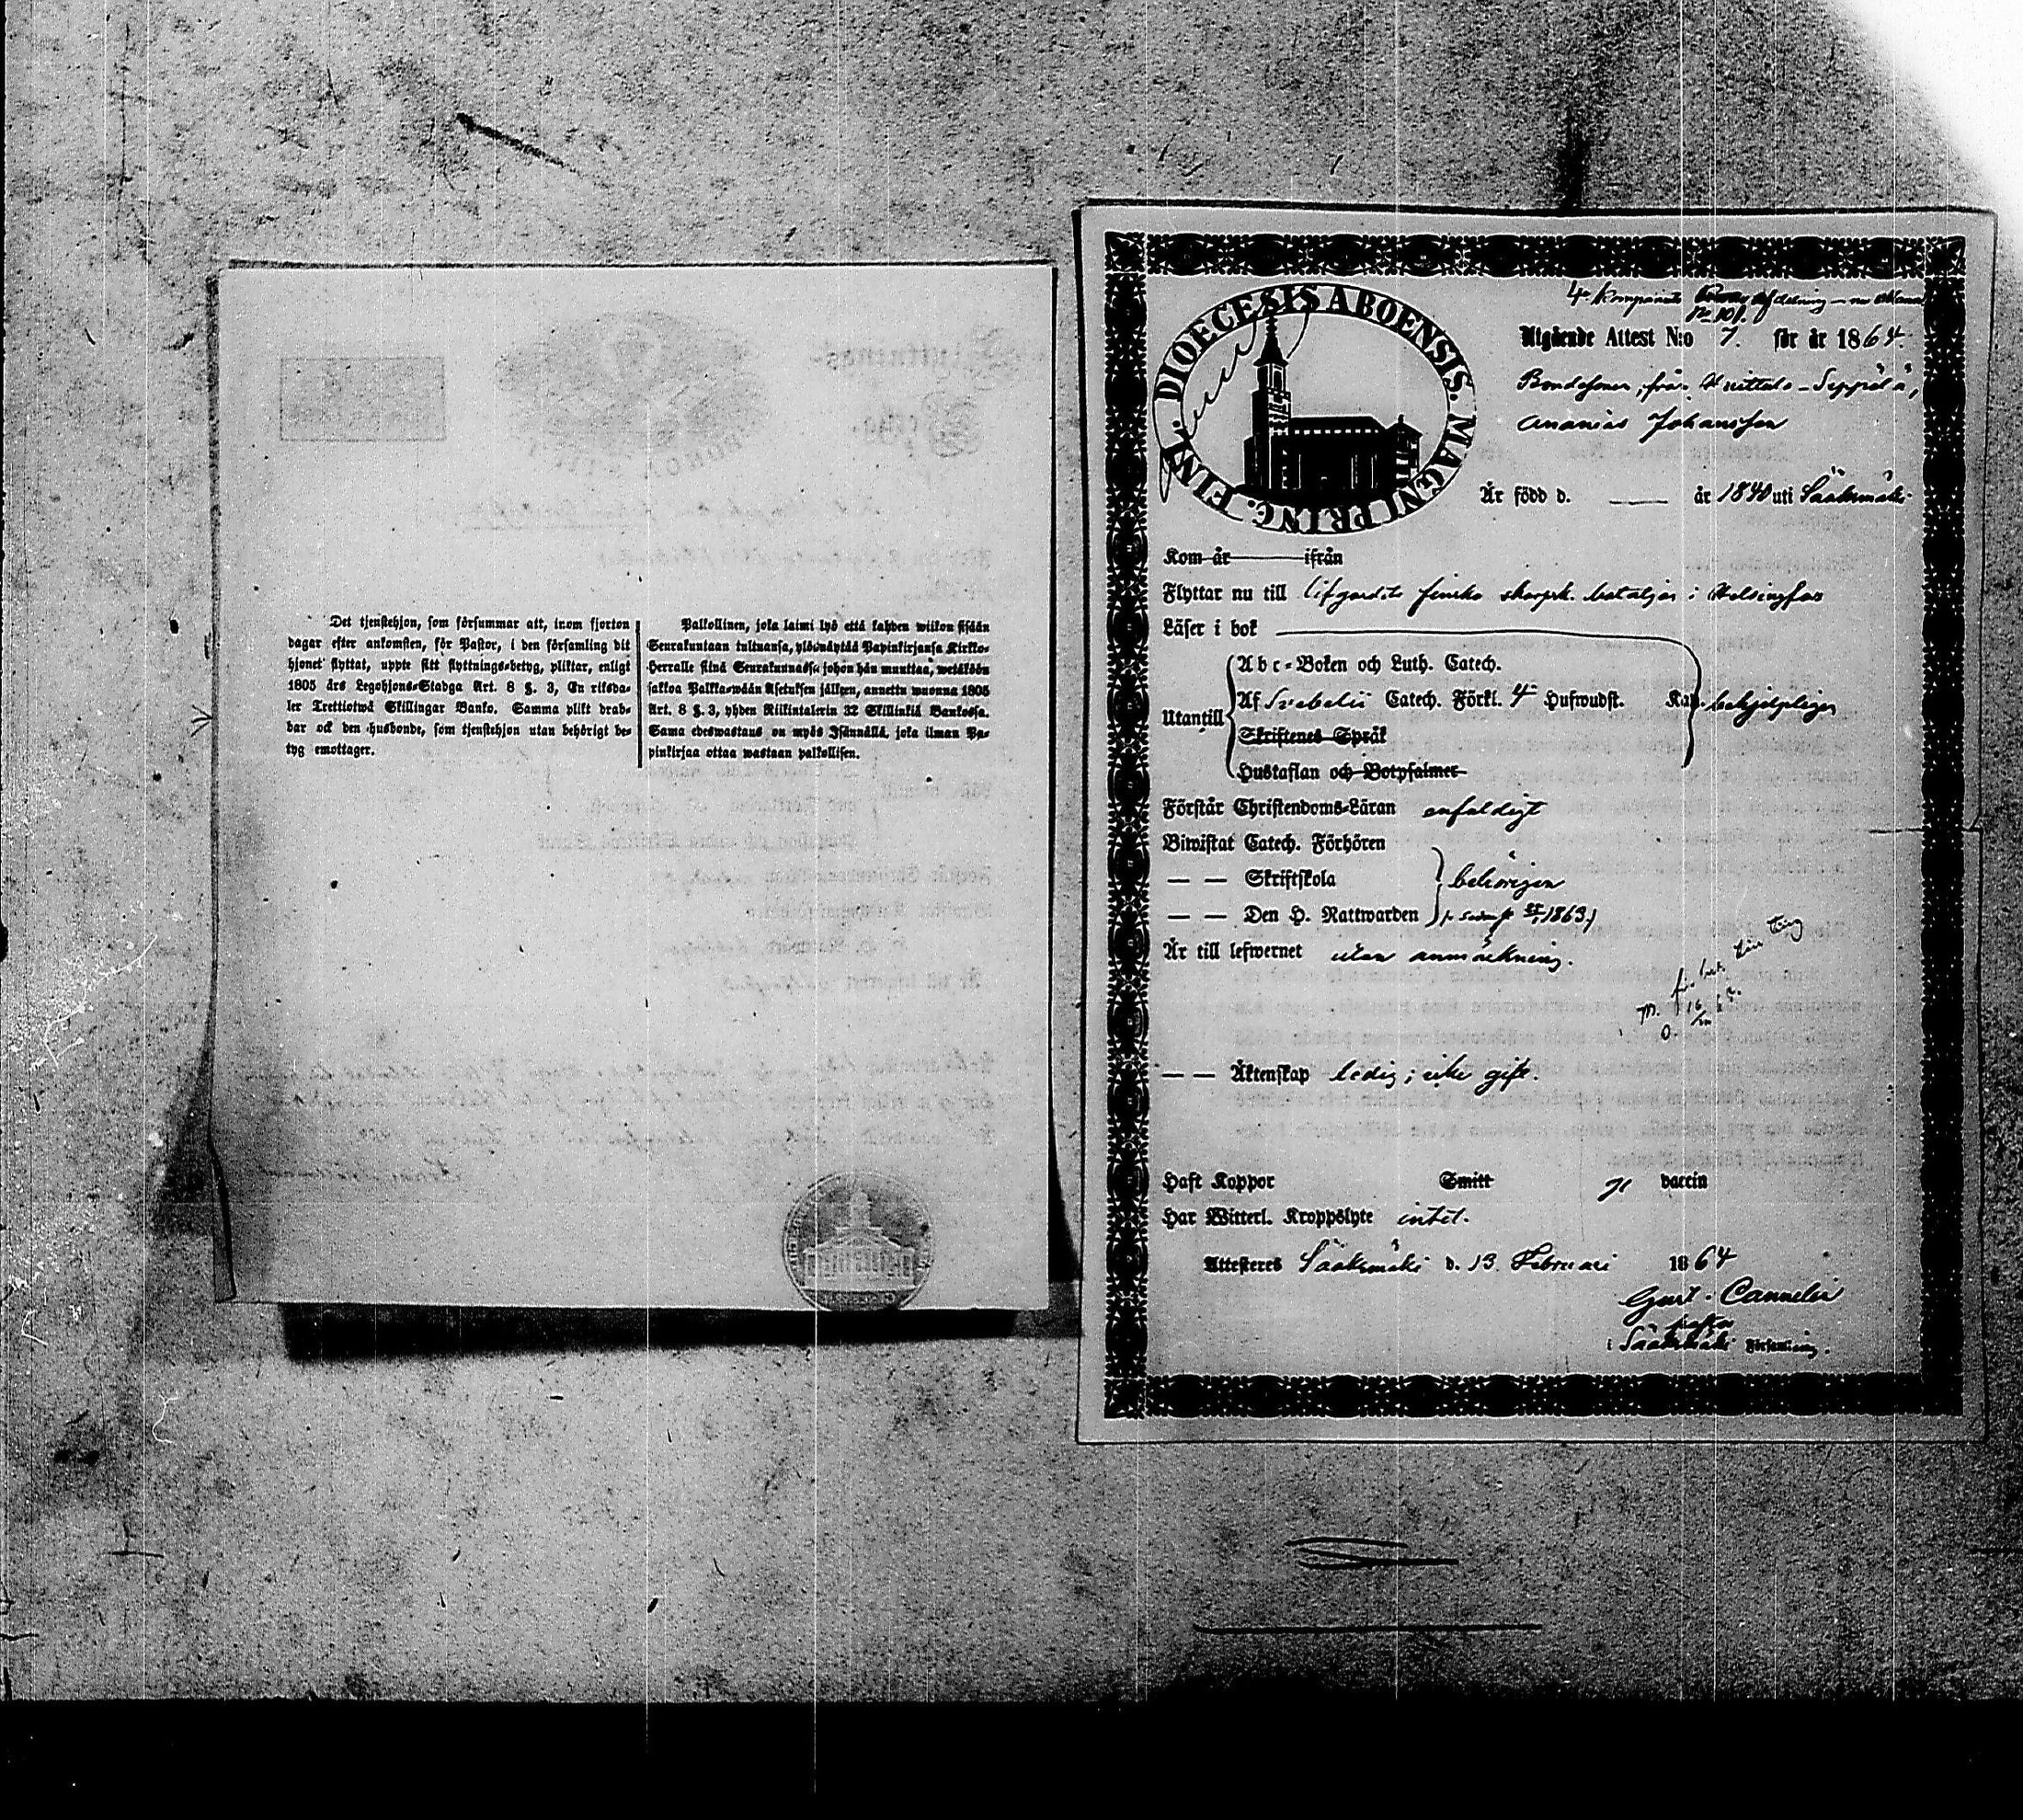 Det tjenstehjon, som försummar att, inom fjorton
dagar efter ankomsten, för Pastor, i den församling dit
hjonet flyttat, uppte sitt flyttnings-betyg, pliktar, enligt
1805 års Legohjons-Stadga Art. 8 §. 3, En riksda-
ler Trettiotwå Skillingar Banko. Samma plikt drab-
bar ock den husbonde, som tjenstehjon utan behörigt be-
tyg emottager.
Palkollinen, joka laimi lyö että kahden wiikon sisään
Seurakuntaan tultuansa, ylösnäytää Papinkirjansa Kirkko-
Herralle siinä Seurakunnassa johon hän muuttaa, wetäköön
sakkoa Palkka-wään Asetuksen jälken, annettu wuonna 1805
Art. 8 §. 3, yhden Riikintalerin 32 Skillinkiä Bankossa.
Sama edeswastaus on myös Isännällä, joka ilman Pa-
pinkirjaa ottaa wastaan palkollisen.
DIOECESIS ABOENSIS. MAGNI PRINC. FINL.
4e Kompaniets
No 101.
Utgående Attest N:o 7. för år 1864.
Bondesonen, från Seppälä,
Ananias Johansson
Är född d. —— år 1840 uti Sääksmäki
Kom år —— ifrån
Flyttar nu till Lifgardets finska skarpsk. bataljon i Helsingfors
Läser i bok
Abc-Boken och Luth. Catech.
Utantill Af Svebelii Catech. Förkl. 4 Hufwudst. behjelpligen
Skriftenes Språk
Hustaflan och Botpsalmer
Förstår Christendoms-Läran enfaldigt
Biwistat Catech. Förhören
— — Skriftskola behörigen
— — Den H. Nattwarden 1863.)
Är till lefwernet utan anmärkning.
— — Äktenskap ledig; icke gift.
Haft Koppor Smitt vaccin
Har Witterl. Kroppslyte intet.
Attesteres Sääksmäki d. 13 Februari 1864
Gust. Cannelin
pastor
i Sääksmäki Församling.